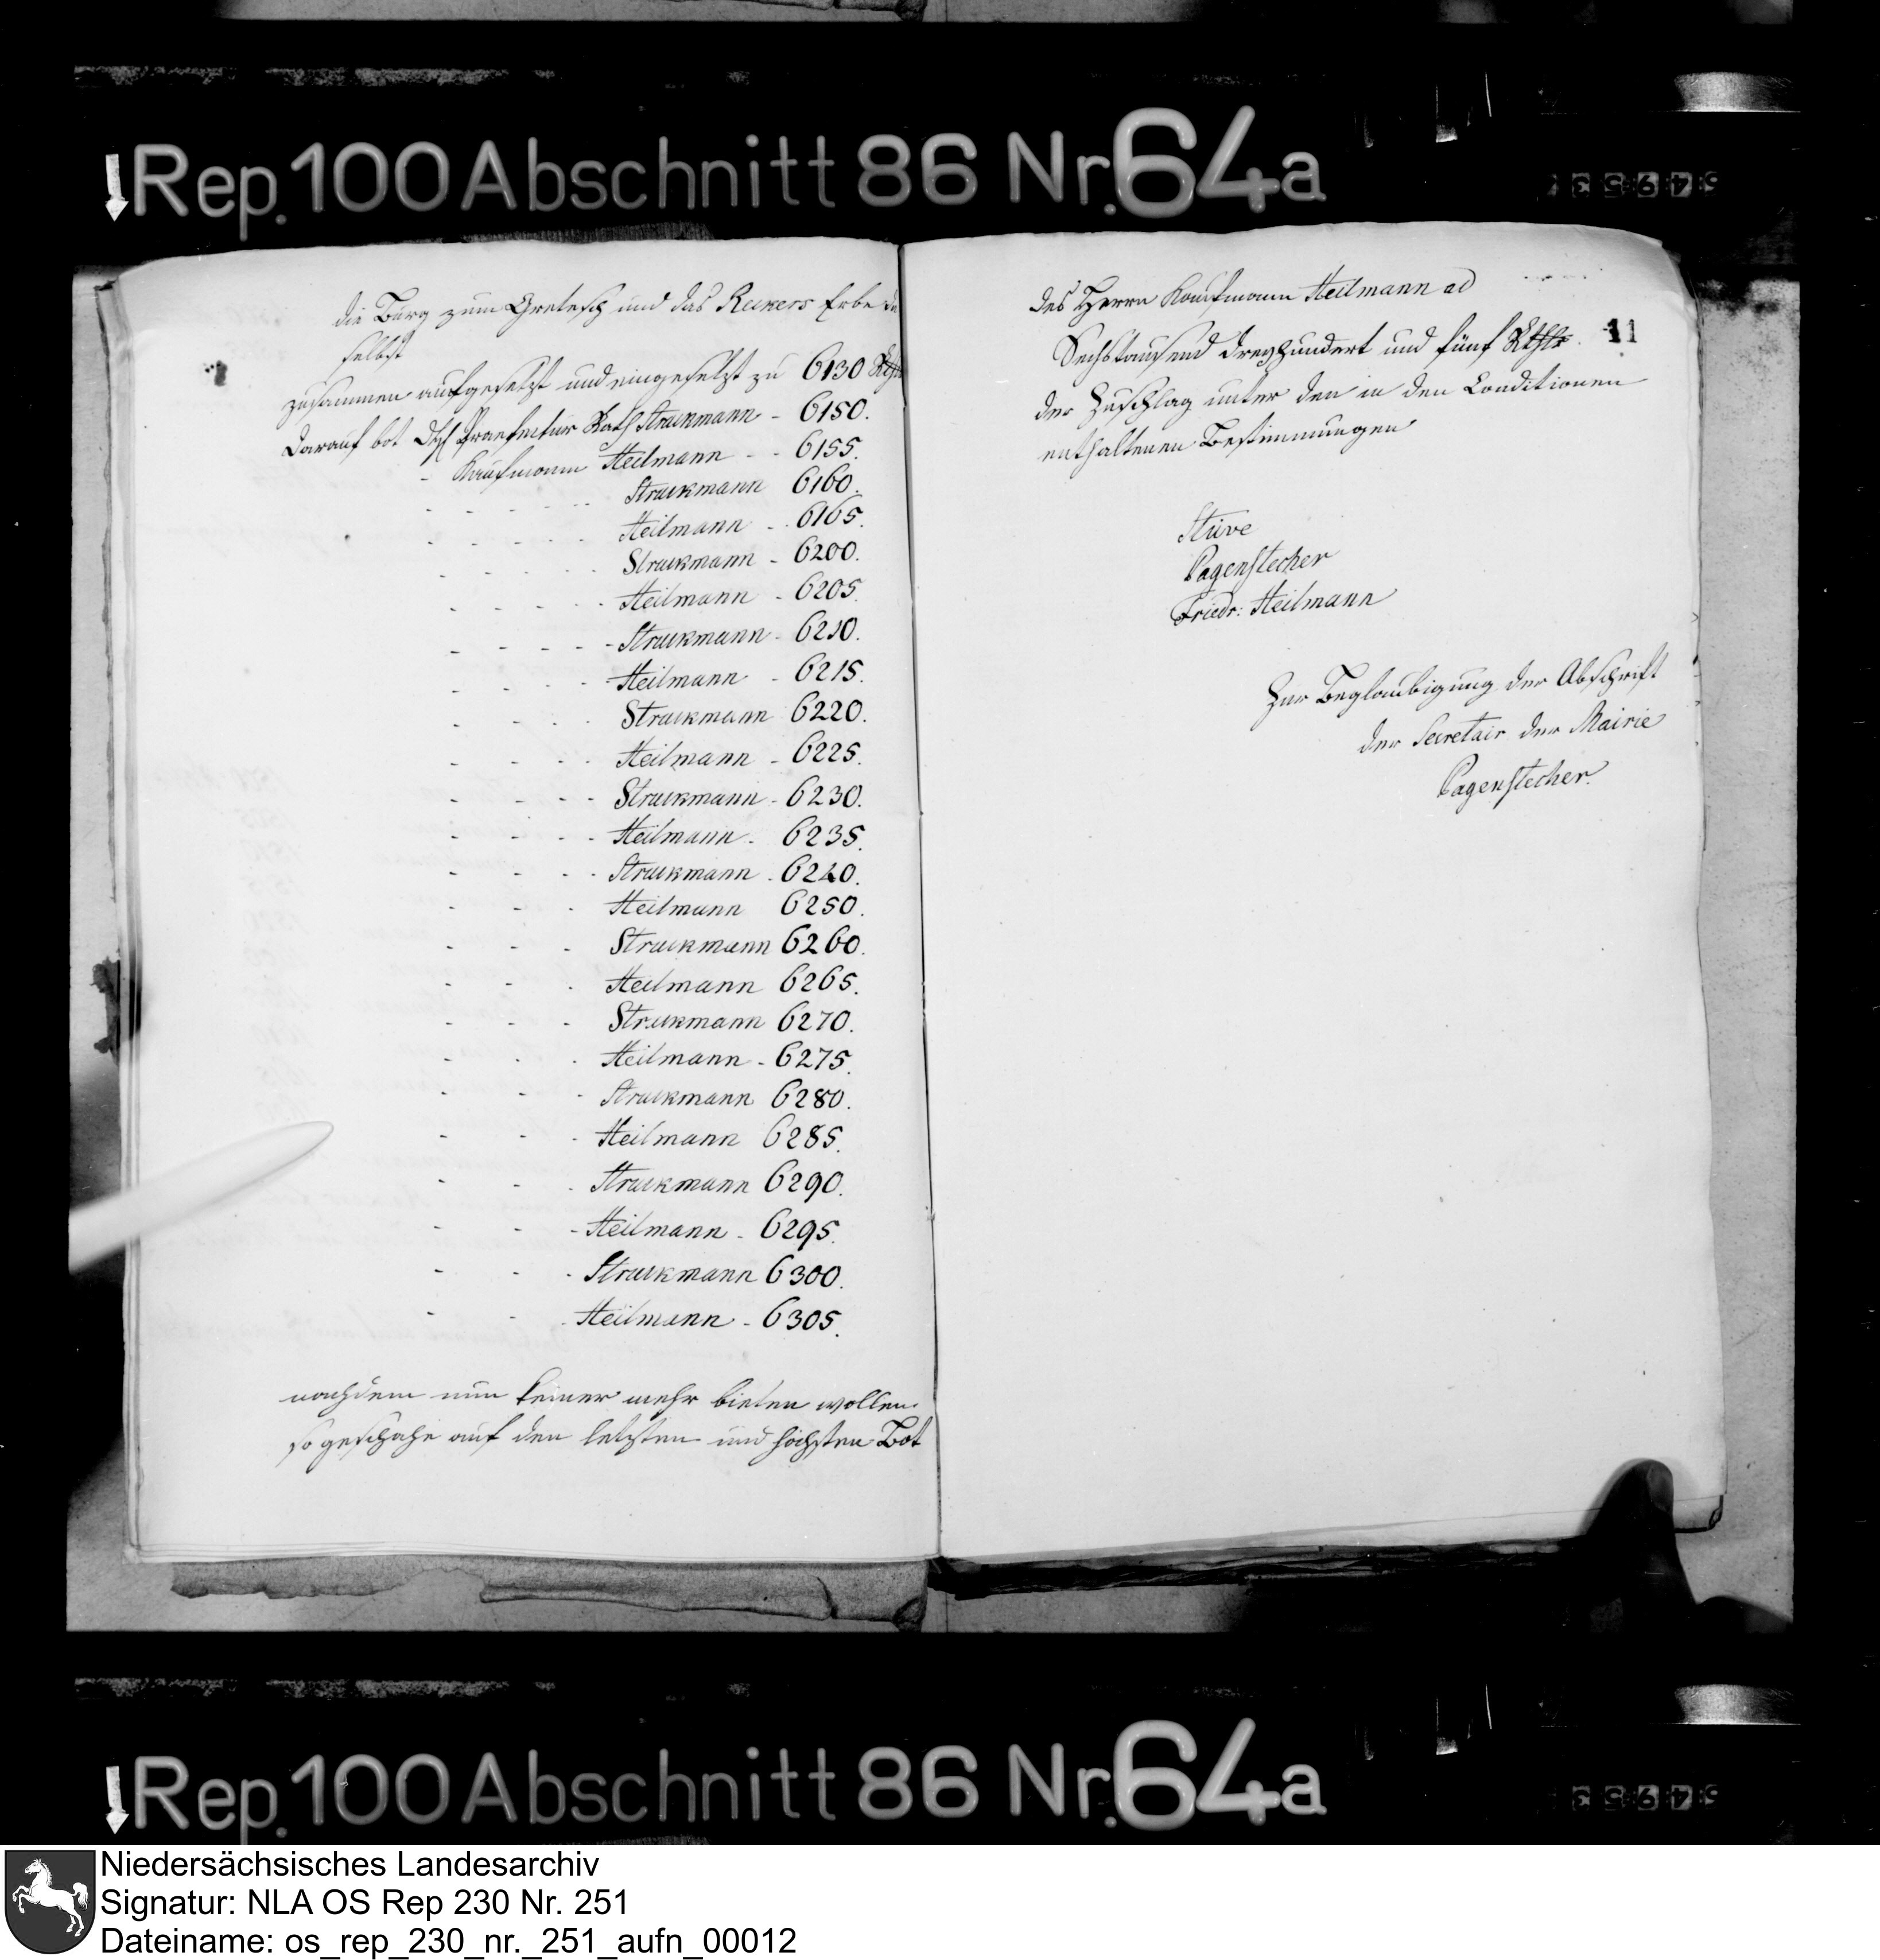 Rep. 100 Abschnitt 86 Nr. 64a
die Burg zum Gretesch und das Reckers Erbe da
selbst
zusammen aufgesetzt und eingesetzt zu 6130 Rthlr
Darauf bot Praefectur Rath Struckmann - 6150.
- Kaufmann Heilmann - - 6155.
Struckmann 6160.
Heilmann - - 6165.
Struckmann - 6200.
Heilmann - 6205.
Struckmann - 6210.
Heilmann - 6215.
Struckmann 6220.
Heilmann - 6225.
Struckmann - 6230.
Heilmann - 6235.
Struckmann - 6240.
Heilmann 6250.
Struckmann 6260.
Heilmann 6265.
Struckmann 6270.
Heilmann - 6275.
Struckmann 6280.
Heilmann 6285.
Struckmann 6290.
Heilmann - 6295.
Struckmann 6300.
Heilmann - 6305.
nachdem nun keiner mehr bieten wollen
so geschahe auf den letzten und höchsten Bot
11
des Herrn Kaufmann Heilmann ad
Sechstausend dreyhundert und fünf Rthlr
der Zuschlag unter den in den Conditionen
enthaltenen Bestimmungen
Stüve
Pagenstecher
Friedr: Heilmann
Zur Beglaubigung der Abschrift
der Secretair der Mairie
Pagenstecher.
Rep. 100 Abschnitt 86 Nr. 64a
Niedersächsisches Landesarchiv
Signatur: NLA OS Rep 230 Nr. 251
Dateiname: os_rep_230_nr._251_aufn_00012